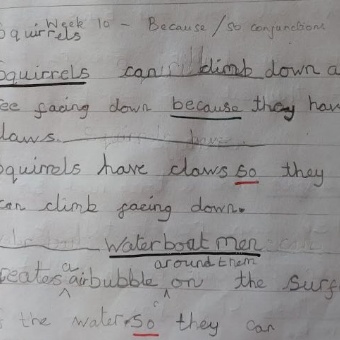 Week 10 - Because / so conjunctions
squirrels
Squirrels can climb down a
ree facing down because they hav
claws.
Squirrels have claws so they
can climb facing down.
Waterboat men
around them
reates a airbubble on the surf
the water so they can